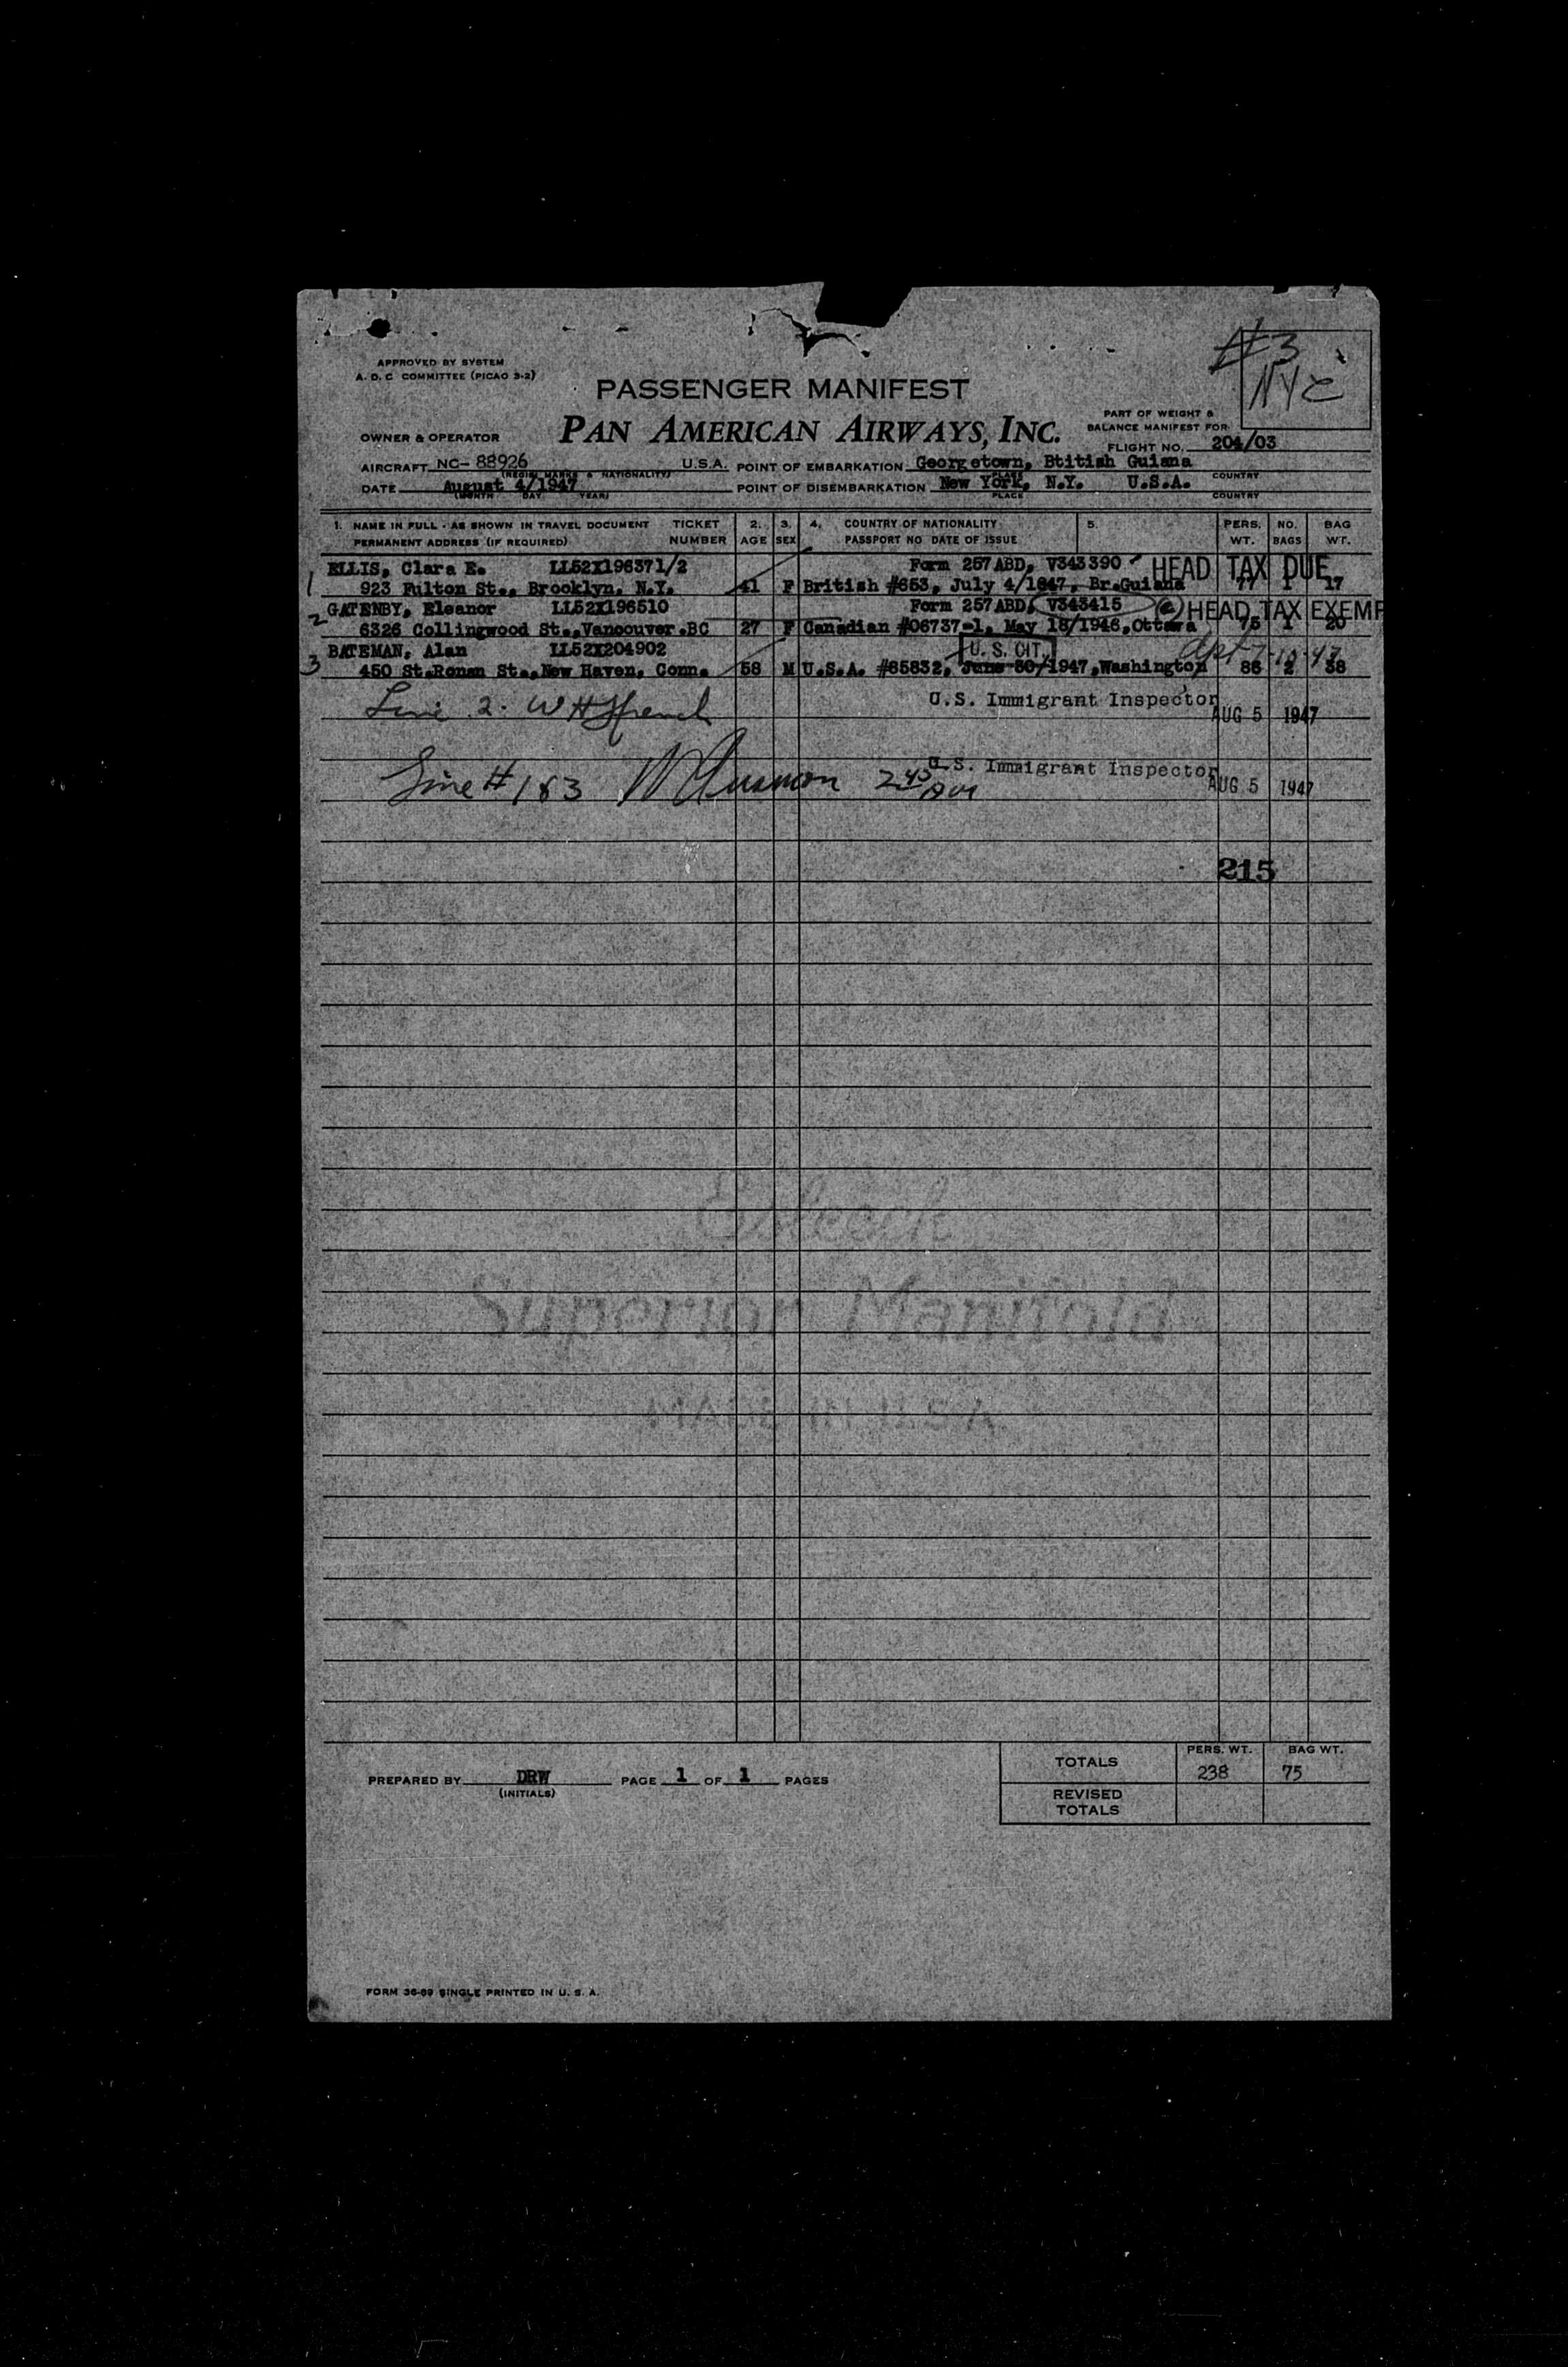 #3
NYC
APPROVED BY SYSTEM
A. D. C. COMMITTEE (PICAO 3-2)
PASSENGER MANIFEST
PAN AMERICAN AIRWAYS, INC.
PART OF WEIGHT &
BALANCE MANIFEST FOR
OWNER & OPERATOR
FLIGHT NO. 204/03
AIRCRAFT NC- 88926 U.S.A. POINT OF EMBARKATION Georgetown, Btitish Guiana
(REGIS. MARKS & NATIONALITY) PLACE COUNTRY
DATE August 4/1947 POINT OF DISEMBARKATION New York, N.Y. U.S.A.
(MONTH DAY YEAR) PLACE COUNTRY
1. NAME IN FULL - AS SHOWN IN TRAVEL DOCUMENT TICKET 2. 3. 4. COUNTRY OF NATIONALITY 5. PERS. NO. BAG
PERMANENT ADDRESS (IF REQUIRED) NUMBER AGE SEX PASSPORT NO DATE OF ISSUE WT. BAGS WT.
1 ELLIS, Clara E. LL52X196371/2 Form 257ABD, V343390 HEAD TAX DUE
923 Fulton St., Brooklyn, N.Y. 41 F British #653, July 4/1947, Br.Guiana 77 1 17
2 GATENBY, Eleanor LL52X196510 Form 257ABD, V343415 HEAD TAX EXEMP
6326 Collingwood St., Vancouver.BC 27 F Canadian #06737-1, May 18/1946, Ottawa 75 1 20
3 BATEMAN, Alan LL52X204902 U. S. CIT.
450 St.Ronan St., New Haven, Conn. 58 M U.S.A. #85832, June 30/1947, Washington 86 2 38
Line 2. W H French U.S. Immigrant Inspector AUG 5 1947
Line # 1&3 2 45 U.S. Immigrant Inspector AUG 5 1947
215
Superior Manifold
MADE IN U.S.A.
TOTALS PERS. WT. BAG WT.
238 75
PREPARED BY DRW PAGE 1 OF 1 PAGES
(INITIALS)
REVISED
TOTALS
FORM 36-69 SINGLE PRINTED IN U. S. A.